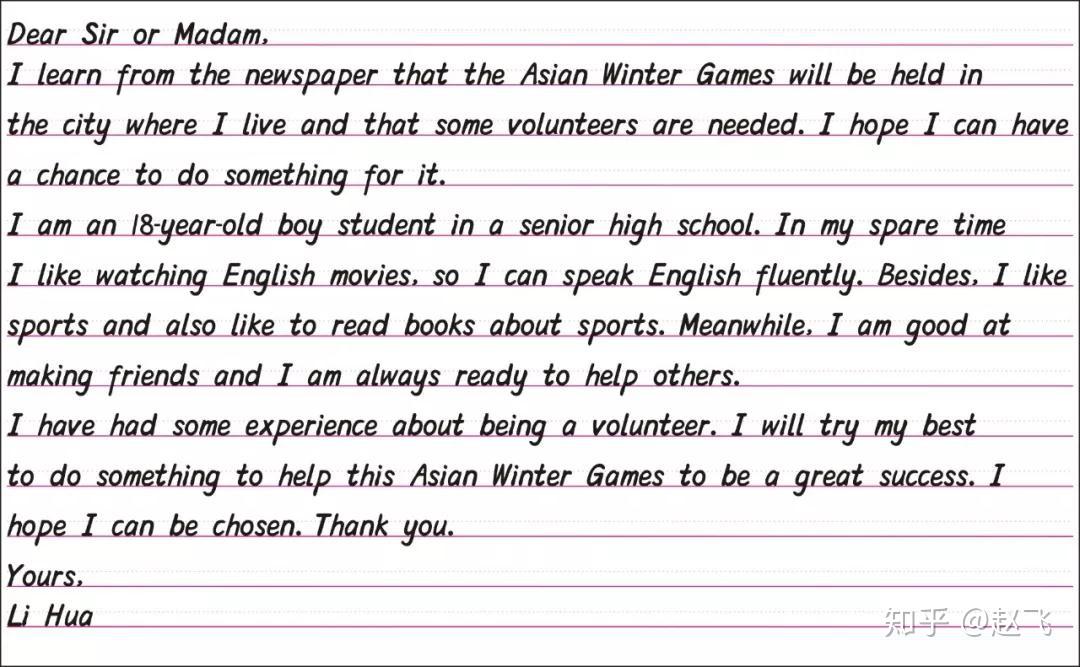 Dear Sir or Madam,
I learn from the newspaper that the Asian Winter Games will be held in
the city where I live and that some volunteers are needed. I hope I can have
a chance to do something for it.
I am an 18-year-old boy student in a senior high school. In my spare time
I like watching English movies, so I can speak English fluently. Besides, I like
sports and also like to read books about sports. Meanwhile, I am good at
making friends and I am always ready to help others.
I have had some experience about being a volunteer. I will try my best
to do something to help this Asian Winter Games to be a great success. I
hope I can be chosen. Thank you.
Yours,
Li Hua
知乎 @赵飞